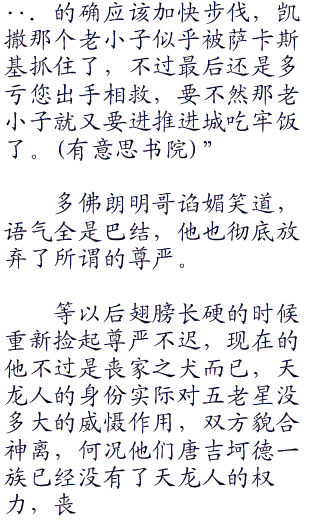 ··. 的确应该加快步伐，凯
撒那个老小子似乎被萨卡斯
基抓住了，不过最后还是多
亏您出手相救，要不然那老
小子就又要进推进城吃牢饭
了。(有意思书院)”
多佛朗明哥谄媚笑道，
语气全是巴结，他也彻底放
弃了所谓的尊严。
等以后翅膀长硬的时候
重新捡起尊严不迟，现在的
他不过是丧家之犬而已，天
龙人的身份实际对五老星没
多大的威慑作用，双方貌合
神离，何况他们唐吉坷德一
族已经没有了天龙人的权
力，丧